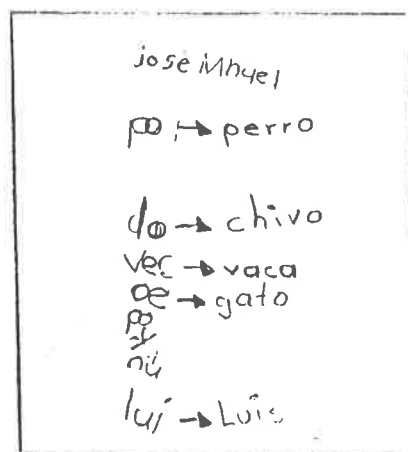 jose iMnuel
po → perro
do → chivo
vec → vaca
oe → gato
po
nu
luj → Luis